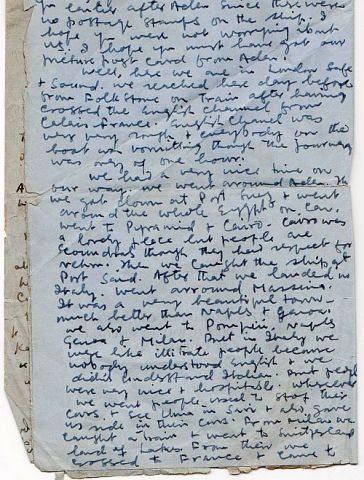 you earlier after Aden since there were
no postage stamps on the ship. I
hope you were not worrying about
us. I hope you must have got our
picture post card from Aden.
Well, here we are in London Safe
+ Sound. We reached here day before
from Folkstone on Train after having
crossed the English Channel from
Calais France. English Channel was
very very rough + everybody on the
boat was vomitting though the journey
was only of one hour.
We had a very nice time on
our way. We went around Aden. Then
we got down at Port Suez + went
around the whole Egypt on Car.
Went to Pyramid + Cairo. Cairo was
a lovely place but people are
scoundrals though they had respect for
us. Then we caught the ship at
Port Said. After that we landed in
Italy. Went arround Massina.
It was a very beautiful town
much better than Naples + Genoa.
We also went to Pompii, Naples
Genoa + Milan. But in Italy we
were like illitrate people because
nobody understood English + we
didn't understand Italian. But people
were very nice + hospitable. Wherever
we went people used to stop their
cars + see Uma in Sari + also gave
us ride in their cars. From Milan we
caught a train + went to Switzerland
land of Lakes. From there we
crossed + France + came to